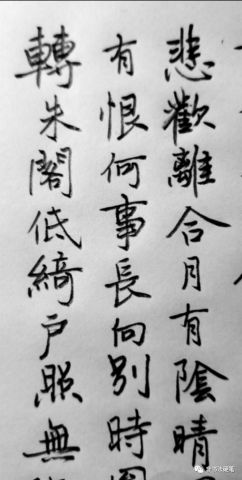 轉朱閣低綺戶照無
有恨何事長向別時
悲歡離合月有陰晴